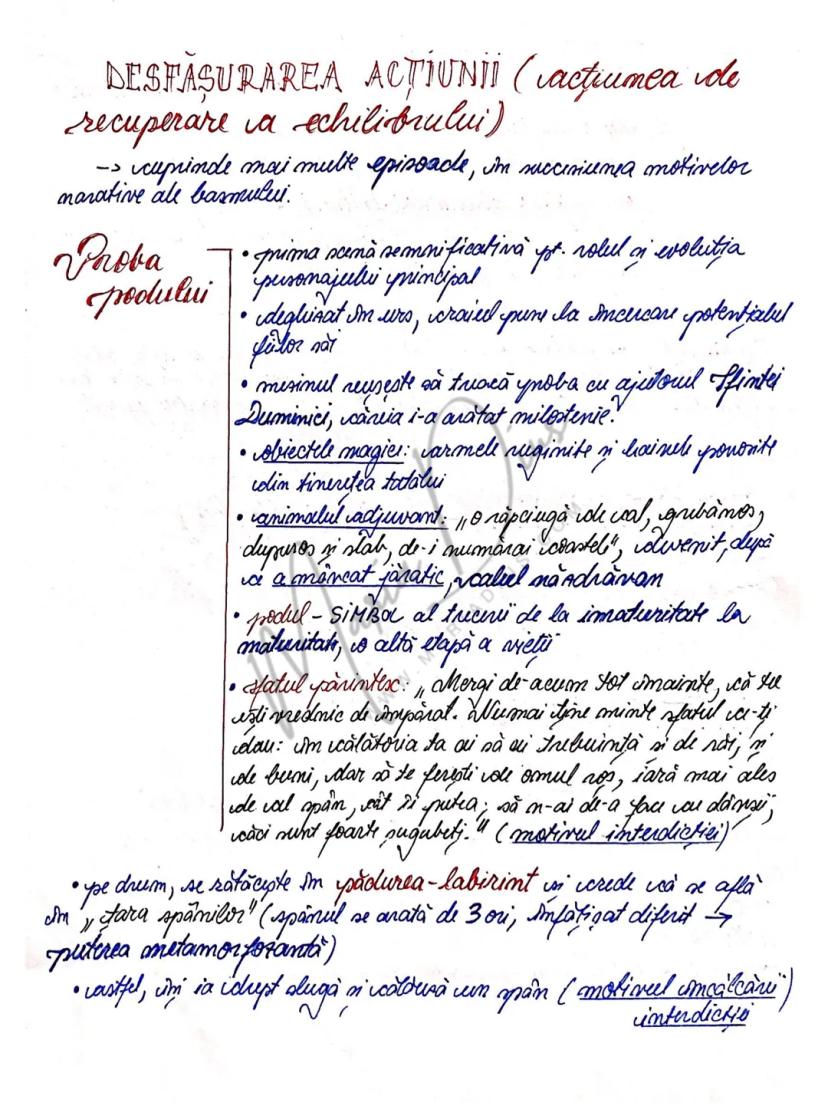 DESFĂȘURAREA ACȚIUNII (acțiunea de
recuperare a echilibrului)
-> cuprinde mai multe episoade, în succesiunea motivelor
narative ale basmului.
Proba
podului
• prima scenă semnificativă pt. rolul și evoluția
personajului principal
• deghizat în urs, craiul pune la încercare potențialul
fiilor săi
• mezinul reușește să treacă proba cu ajutorul Sfintei
Duminici, căreia i-a arătat milostenie.
• obiectele magice: armele ruginite și hainele ponosite
din tinerețea tatălui
• animalul adjuvant: „o răpciugă de cal, grebănos,
dupuros și slab, de-i numărai coastele", devenit, după
ce a mâncat jăratic, calul năzdrăvan
• podul - SIMBOL al trecerii de la imaturitate la
maturitate, o altă etapă a vieții
• sfatul părintesc: „Mergi de-acum tot înainte, că tu
ești vrednic de împărat. Numai ține minte sfatul ce-ți
dau: în călătoria ta ai să ai trebuință și de răi, și
de buni, dar să te ferești de omul roș, iară mai ales
de cel spân, cât îi putea; să n-ai de-a face cu dânșii,
căci sunt foarte șugubeți." (motivul interdicției)
• pe drum, se rătăcește în pădurea-labirint și crede că se află
în „țara spânilor" (spânul se arată de 3 ori, înfățișat diferit →
puterea metamorfozantă)
• astfel, își ia drept slugă și călăuză un spân (motivul încălcării
interdicției)